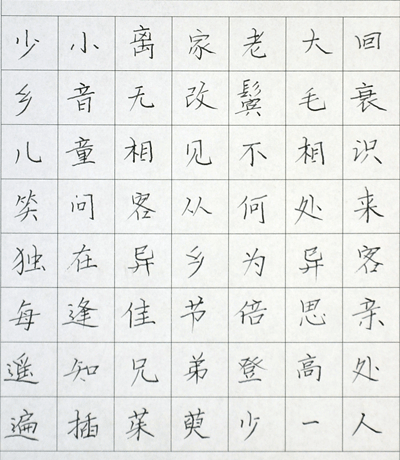 少小离家老大回
乡音无改鬓毛衰
儿童相见不相识
笑问客从何处来
独在异乡为异客
每逢佳节倍思亲
遥知兄弟登高处
遍插茱萸少一人